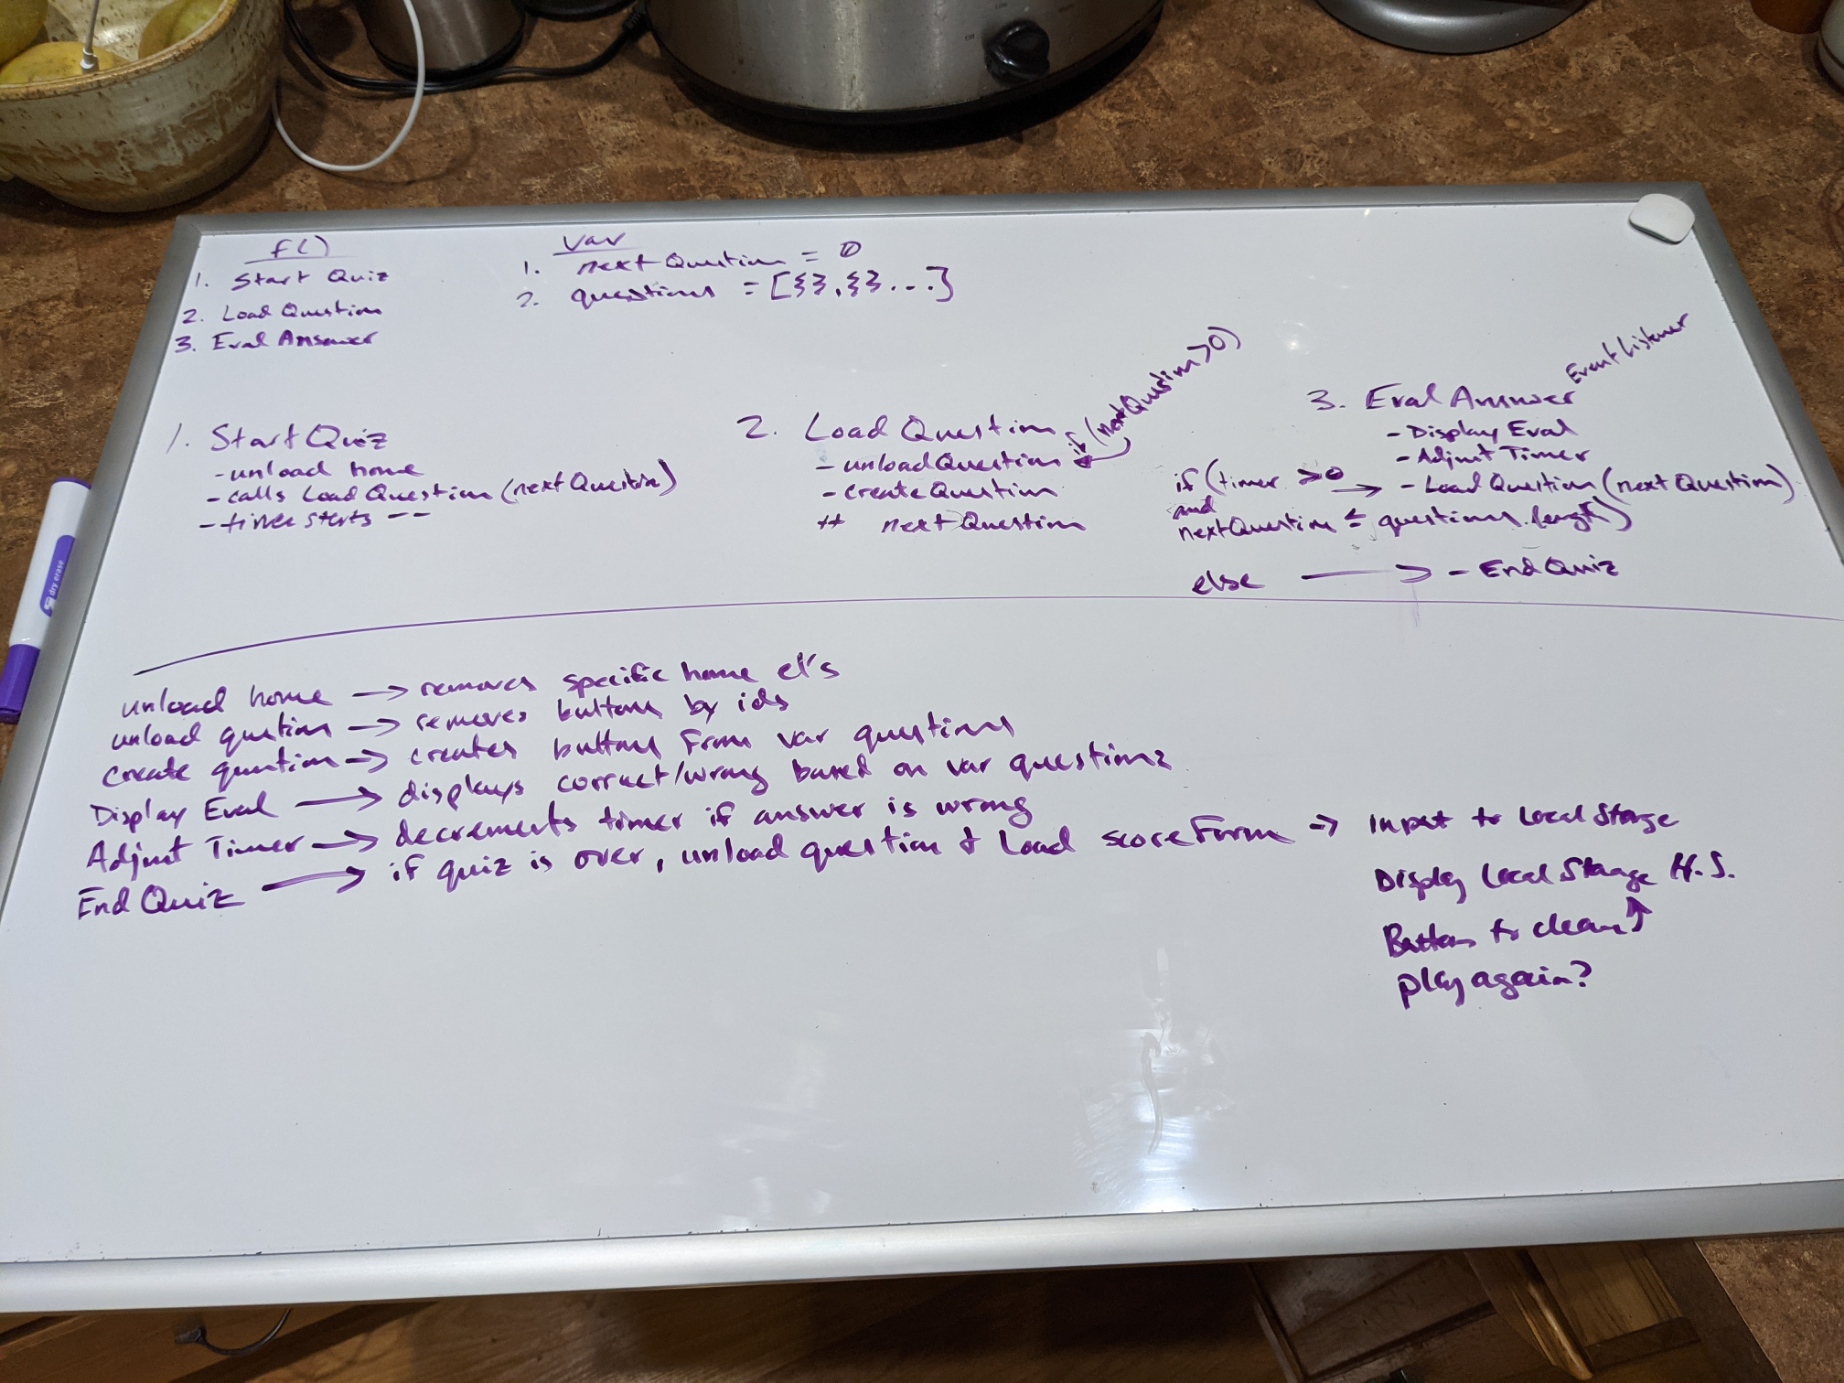 f()
1. Start Quiz
2. Load Question
3. Eval Answer
var
1. nextQuestion = 0
2. questions = [{},{}...]
1. Start Quiz
- unload home
- calls Load Question (nextQuestion)
- timer starts --
2. Load Question
- unloadQuestion if (nextQuestion > 0)
- createQuestion
++ nextQuestion
3. Eval Answer Event Listener
- Display Eval
- Adjust Timer
if (timer > 0 → - Load Question (nextQuestion)
and
nextQuestion ≤ questions.length)
else → - End Quiz
unload home → removes specific home el's
unload question → removes buttons by ids
create question → creates buttons from var questions
Display Eval → displays correct/wrong based on var questions
Adjust Timer → decrements timer if answer is wrong
End Quiz → if quiz is over, unload question & load scoreForm → input to local Storage
Display local Storage H.S.
Button to clear ↑
play again?
dry erase